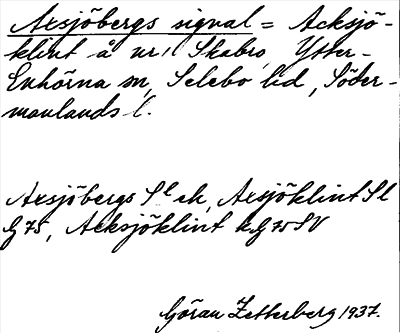 Axsjöbergs signal = Acksjö-
klint å nr 1 Skabro, Ytter-
Enhörna sn, Selebo hd, Söder-
manlands l.
Axsjöbergs Sl ek, Axsjöklint Sl
G 75, Acksjöklint k.G 75 SV
Göran Zetterberg 1937.